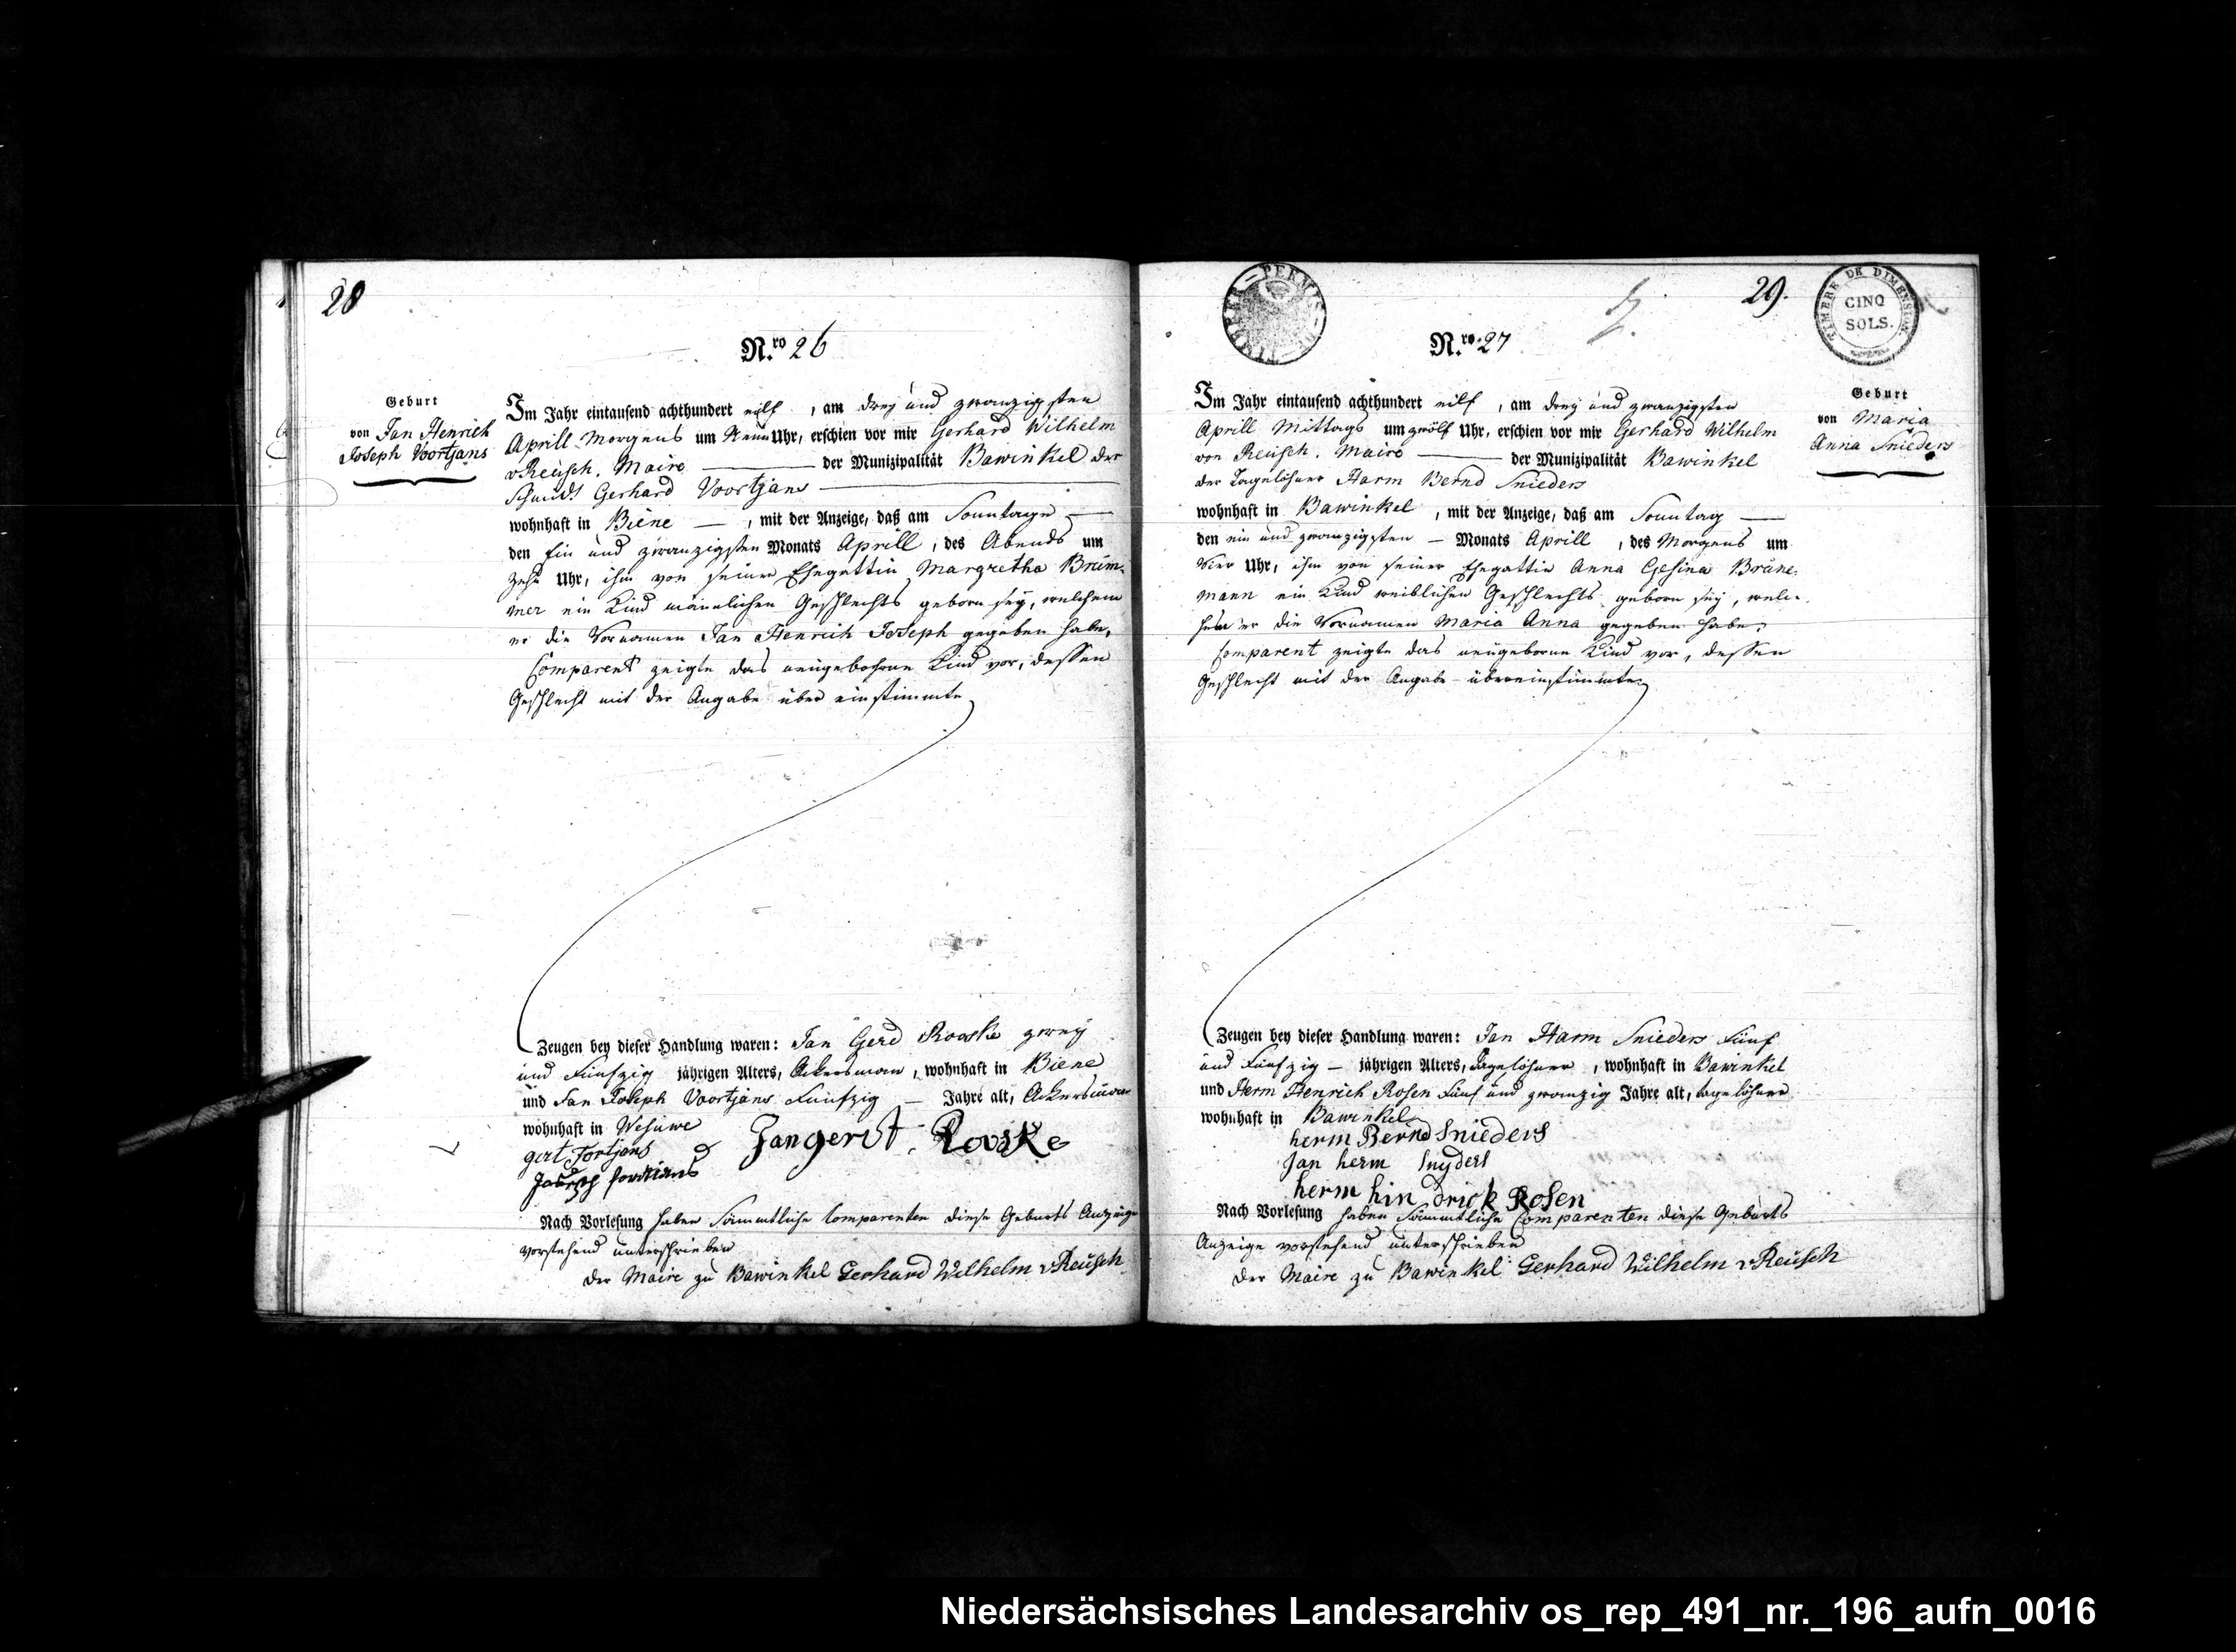 28
N.ro 26
Geburt
von Jan Henrich
Joseph Voortjans
Im Jahr eintausend achthundert eilf, am drey und zwanzigsten
Aprill Morgens um Neun Uhr, erschien vor mir Gerhard Wilhelm
vReusch, Maire — der Munizipalität Bawinkel der
Gerhard Voortjans —
wohnhaft in Biene —, mit der Anzeige, daß am Sonntage —
den Ein und zwanzigsten Monats Aprill, des Abends um
zehn Uhr, ihm von seiner Ehegattin Margretha Brüm-
mer ein Kind männlichen Geschlechts geboren sey, welchem
er die Vornamen Jan Henrich Joseph gegeben habe,
Comparent zeigte das neugebohrne Kind vor, dessen
Geschlecht mit der Angabe über einstimmte
Zeugen bey dieser Handlung waren: Jan Gerd Rooske zwey
und Fünfzig jährigen Alters, Ackersmann, wohnhaft in Biene
und Jan Joseph Voortjans Fünfzig — Jahre alt, Ackersmann
wohnhaft in Wesuwe
gert Fortjans
Jangerdt Rooske
Joseph
Nach Vorlesung haben sämmtliche Comparenten diese Geburts Anzeige
vorstehend unterschrieben
der Maire zu Bawinkel Gerhard Wilhelm vReusch
29.
PERMIS DE TIMBRER
TIMBRE DE DIMENSION
CINQ
SOLS.
N.ro 27
Geburt
von Maria
Anna Snieders
Im Jahr eintausend achthundert eilf, am drey und zwanzigsten
Aprill Mittags um zwölf Uhr, erschien vor mir Gerhard Wilhelm
von Reusch, Maire — der Munizipalität Bawinkel
der Tagelöhner Harm Bernd Snieders
wohnhaft in Bawinkel, mit der Anzeige, daß am Sonntag —
den ein und zwanzigsten — Monats Aprill, des Morgens um
Vier Uhr, ihm von seiner Ehegattin Anna Gesina Brüne-
mann ein Kind weiblichen Geschlechts geboren sey, welc-
hem er die Vornamen Maria Anna gegeben habe,
Comparent zeigte das neugeborne Kind vor, dessen
Geschlecht mit der Angabe übereinstimmte
Zeugen bey dieser Handlung waren: Jan Harm Snieders Fünf
und Fünfzig — jährigen Alters, Tagelöhner, wohnhaft in Bawinkel
und Herm Henrich Rosen Fünf und zwanzig Jahre alt, tagelöhner
wohnhaft in Bawinkel
herm Bernd Snieders
Jan herm Snyders
herm hin drick Rosen
Nach Vorlesung haben sämmtliche Comparenten diese Geburts
Anzeige vorstehend unterschrieben
der Maire zu Bawinkel Gerhard Wilhelm vReusch
Niedersächsisches Landesarchiv os_rep_491_nr._196_aufn_0016